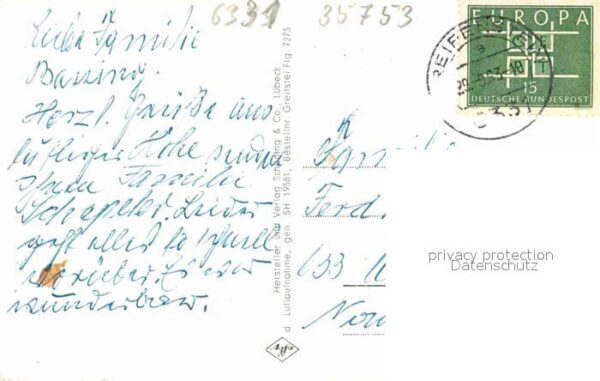 6331 35753
Liebe Familie
Banzing.
Herzl. Grüße aus
luftiger Höhe senden
Ihnen Familie
Leider
geht alles so schnell
vorüber. Es war
wunderbar.
Hersteller und Verlag Schöning & Co., Lübeck
d Luftaufnahme, gen. SH 19581, Bestellnr. Greifster Flg. 7273
EUROPA
15
DEUTSCHE BUNDESPOST
Familie
Ferd.
633
privacy protection
Datenschutz